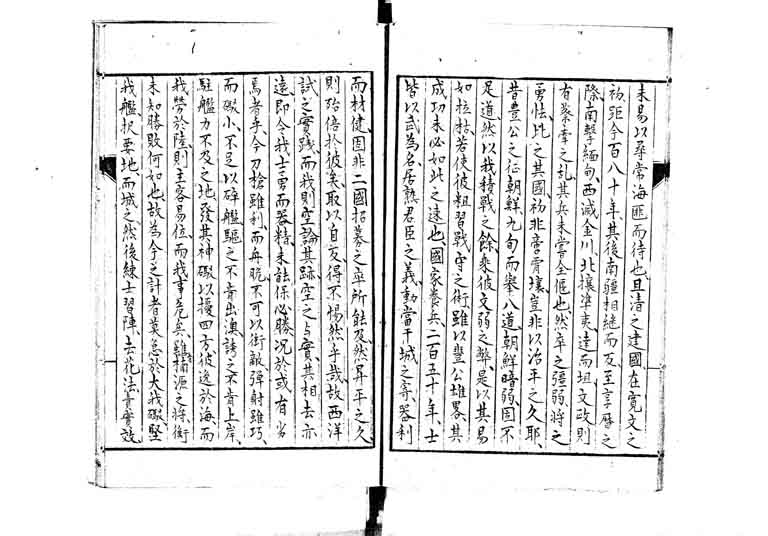 未易以尋常海匪而待也且清之建國在寛文之
初距今百八十年其後南疆相継而反至享暦之
際南擊緬甸西滅金川北攘準夷達而坦文政則
有蒙掌之乱其兵未嘗全偃也然卒之彊弱将之
勇怯比之其國初非啻霄壤豈非以治平之久耶
昔豊公之征朝鮮九旬而擧八道朝鮮暗弱固不
足道然以我積戦之餘乘彼文弱之弊是以其易
如拉枯若使彼粗習戦守之術雖以豊公雄畧其
成功未必如此之速也國家養兵二百五十年士
皆以武為名居熟君臣之義動當干城之寄器利
而材健固非二國招募之卒所能及然昇平之久
則殆倍於彼矣取以自反得不惕然乎哉故西洋
試之實践而我則空論其跡空之与實其相去亦
遠即令我士勇而器精未能保必勝况於或有劣
焉者乎今刀槍雖利而舟脆不可以衝敵弾射雖巧
而礮小不足以碎艦駆之不肯出澳誘之不肯上岸
駐艦力不及之地發其神礮以擾四方彼逸於海而
我勞於陸則主客易位而我事危矣雖捕源之将衛
未知勝敗何如也故為今之計者莫急於大我礮堅
我艦択要地而城之然後練士習陣去花法責實效